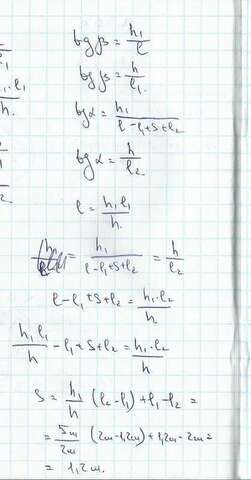 tgβ = h₁/ℓ
tgβ = h/ℓ₁
tgα = h₁/(ℓ-ℓ₁+S+ℓ₂)
tgα = h/ℓ₂
ℓ = h₁ℓ₁/h
= h₁/(ℓ-ℓ₁+S+ℓ₂) = h/ℓ₂
ℓ-ℓ₁+S+ℓ₂ = h₁·ℓ₂/h
h₁ℓ₁/h - ℓ₁+S+ℓ₂ = h₁·ℓ₂/h
S = h₁/h (ℓ₂-ℓ₁)+ℓ₁-ℓ₂ =
= 5m/2m (2m-1,2m)+1,2m-2m =
= 1,2m.